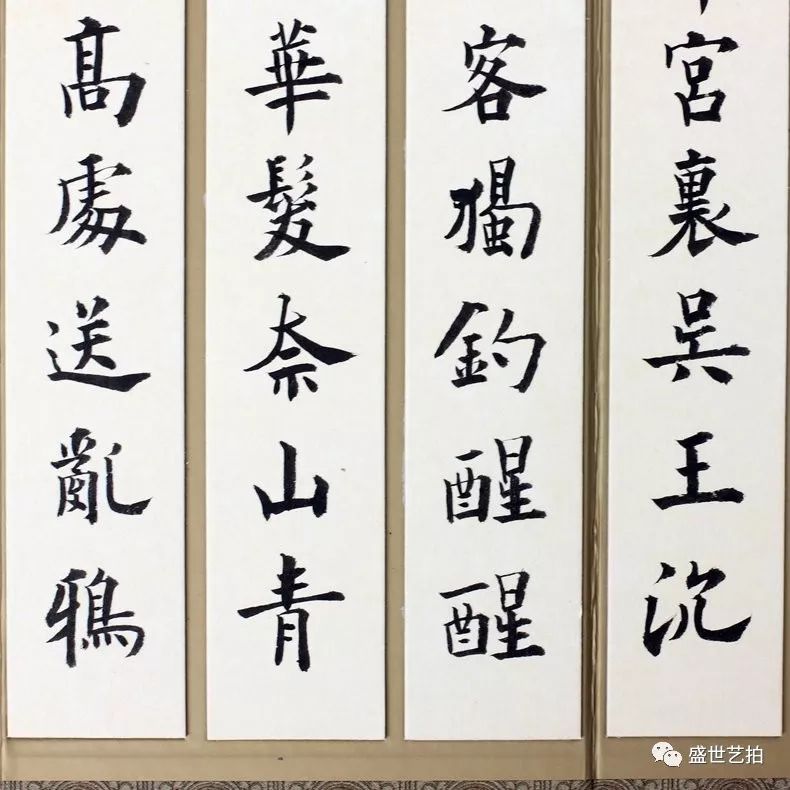 宮裏吳王沉
客獨釣醒醒
華髮奈山青
高處送亂鴉
盛世艺拍